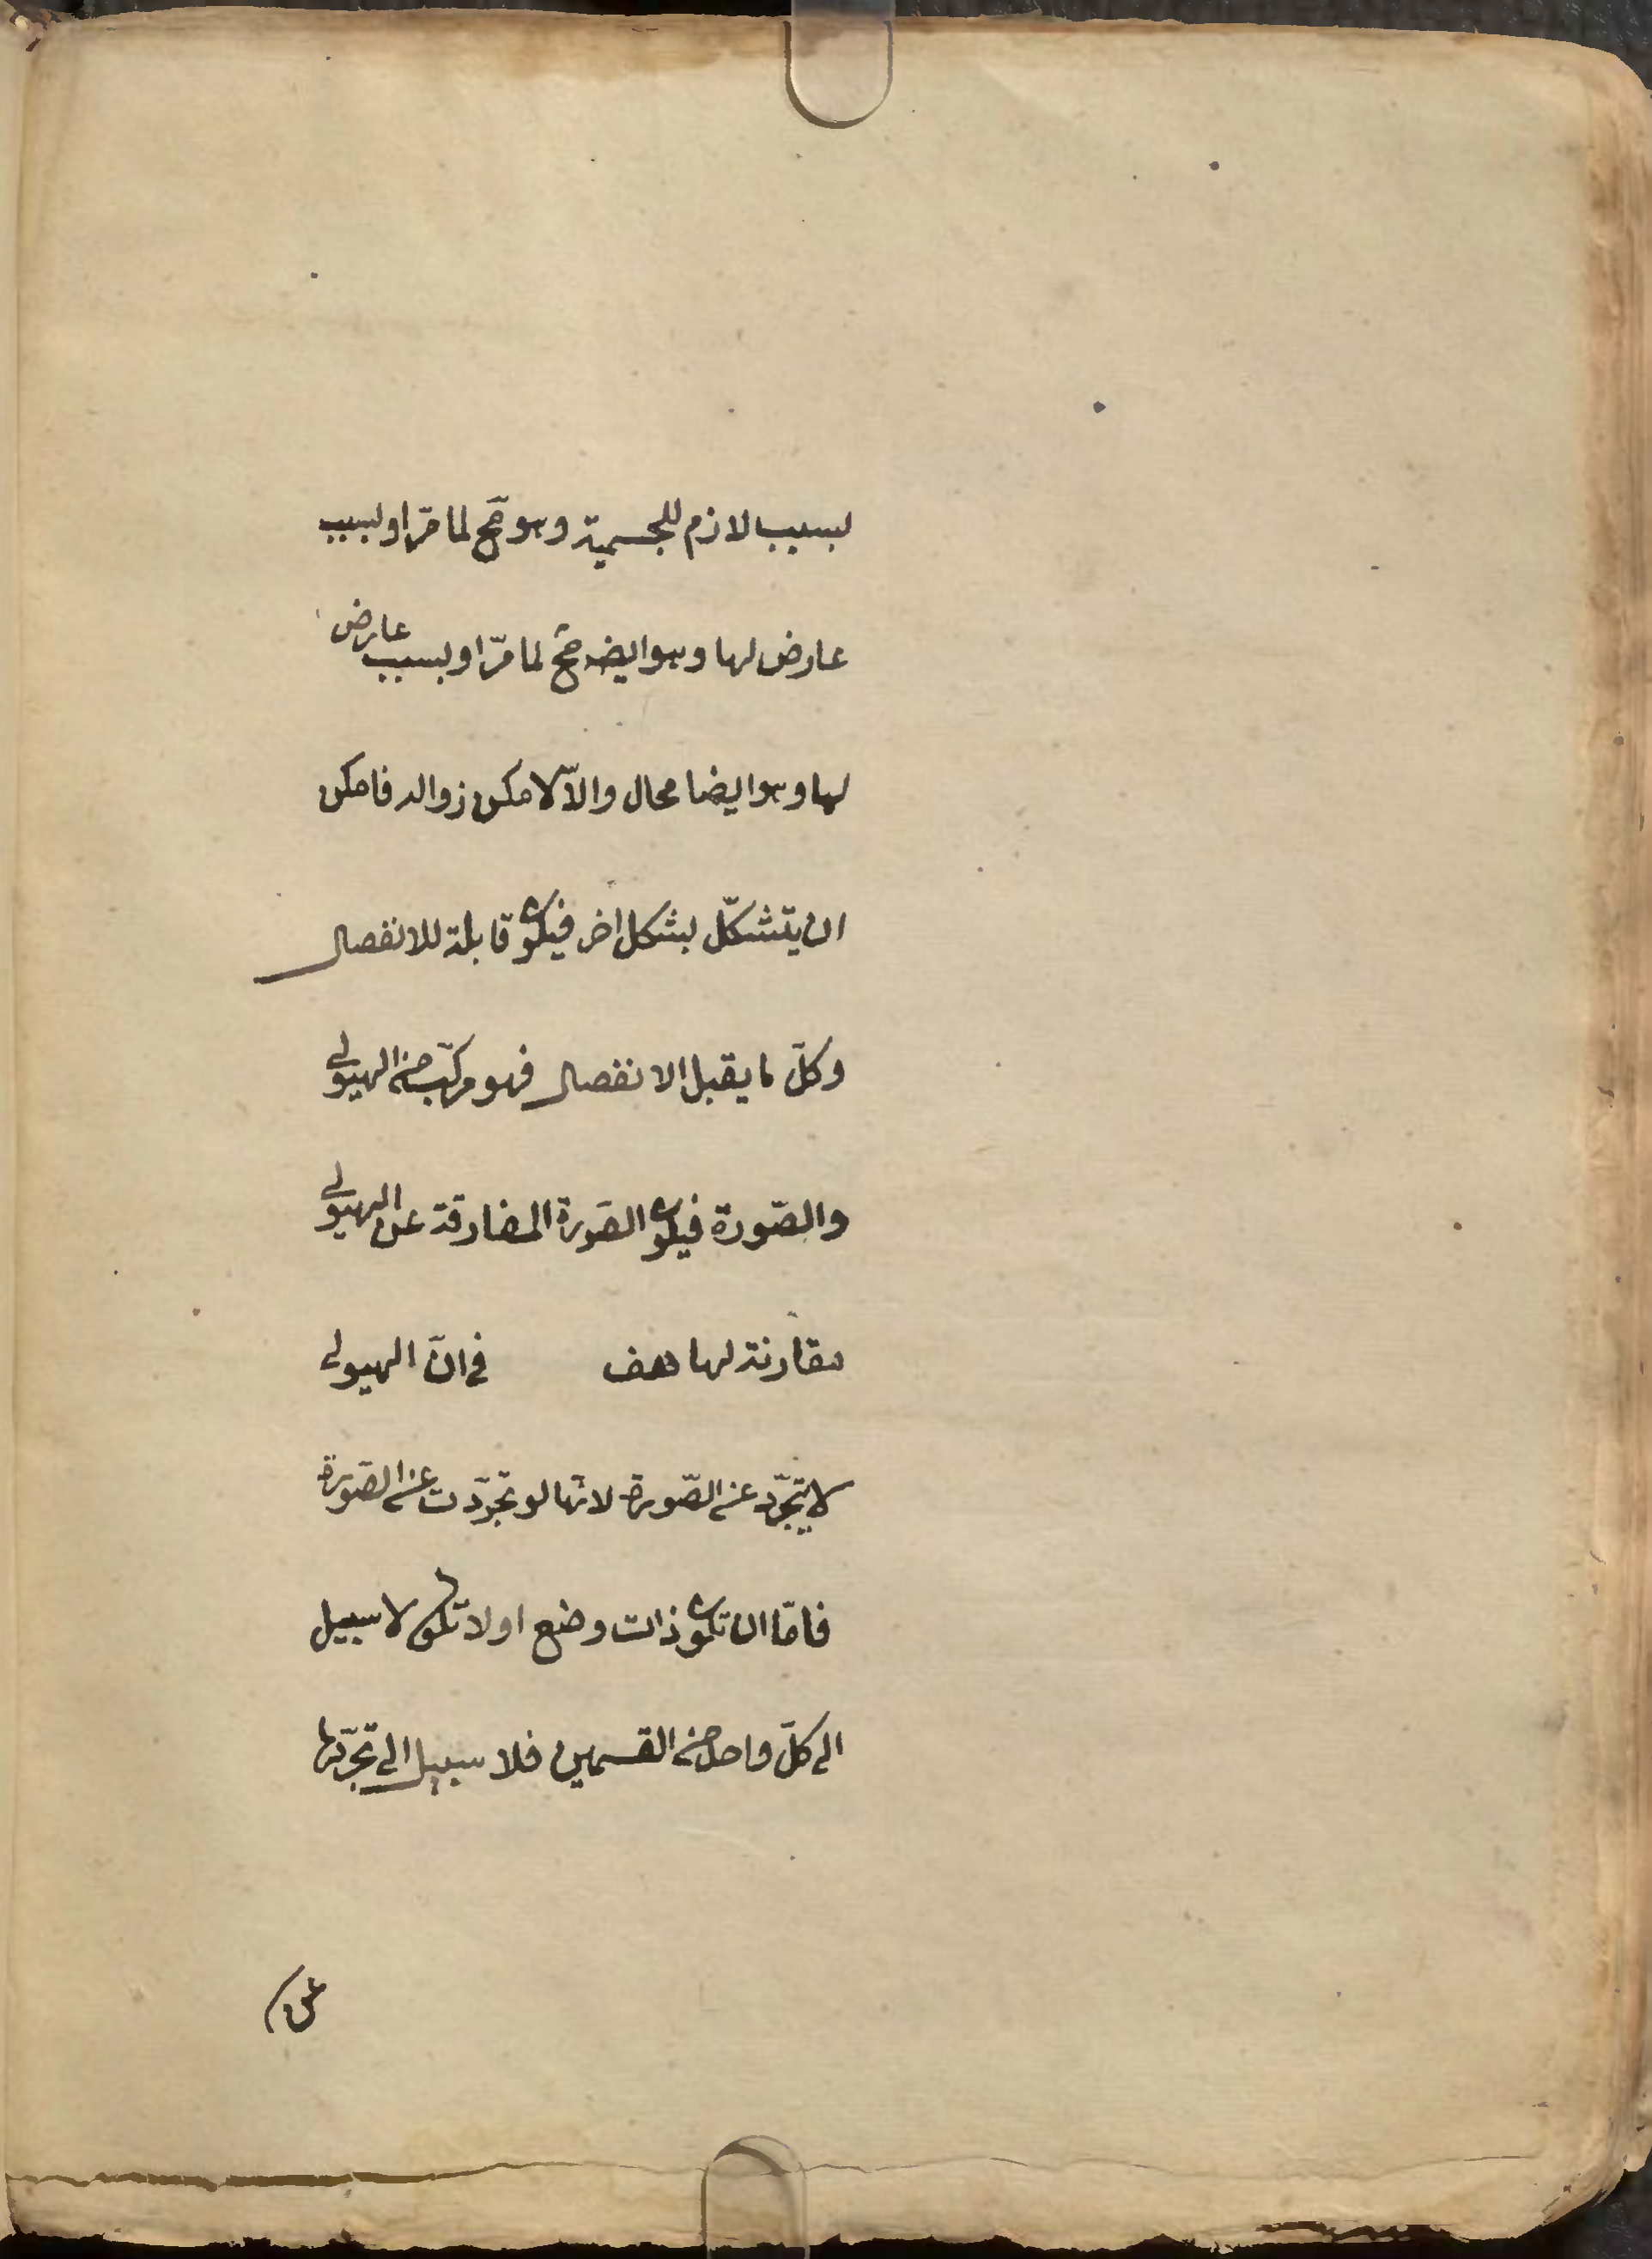 لسبب لازم للجسمية وهو مح لما مرّ او لسبب
عارض لها وهو ايضه مح لما مرّ او بسبب عارض
لها وهو ايضا محال والّا لامكن زواله فامكن
ان يتشكّل بشكل اخر فيكون قابلة للانفصال
وكلّ ما يقبل الانفصال فهو مركّب من الهيولى
والصّورة فيكون الصّورة المفارقة عن الهيولى
مقارنة لها هف في انّ الهيولى
لا يتجرّد عن الصّورة لانّها لو تجرّدت عن الصّورة
فامّا ان تكون ذات وضع او لا تكون لا سبيل
الى كلّ واحد من القسمين فلا سبيل الى تجرّدها
عن